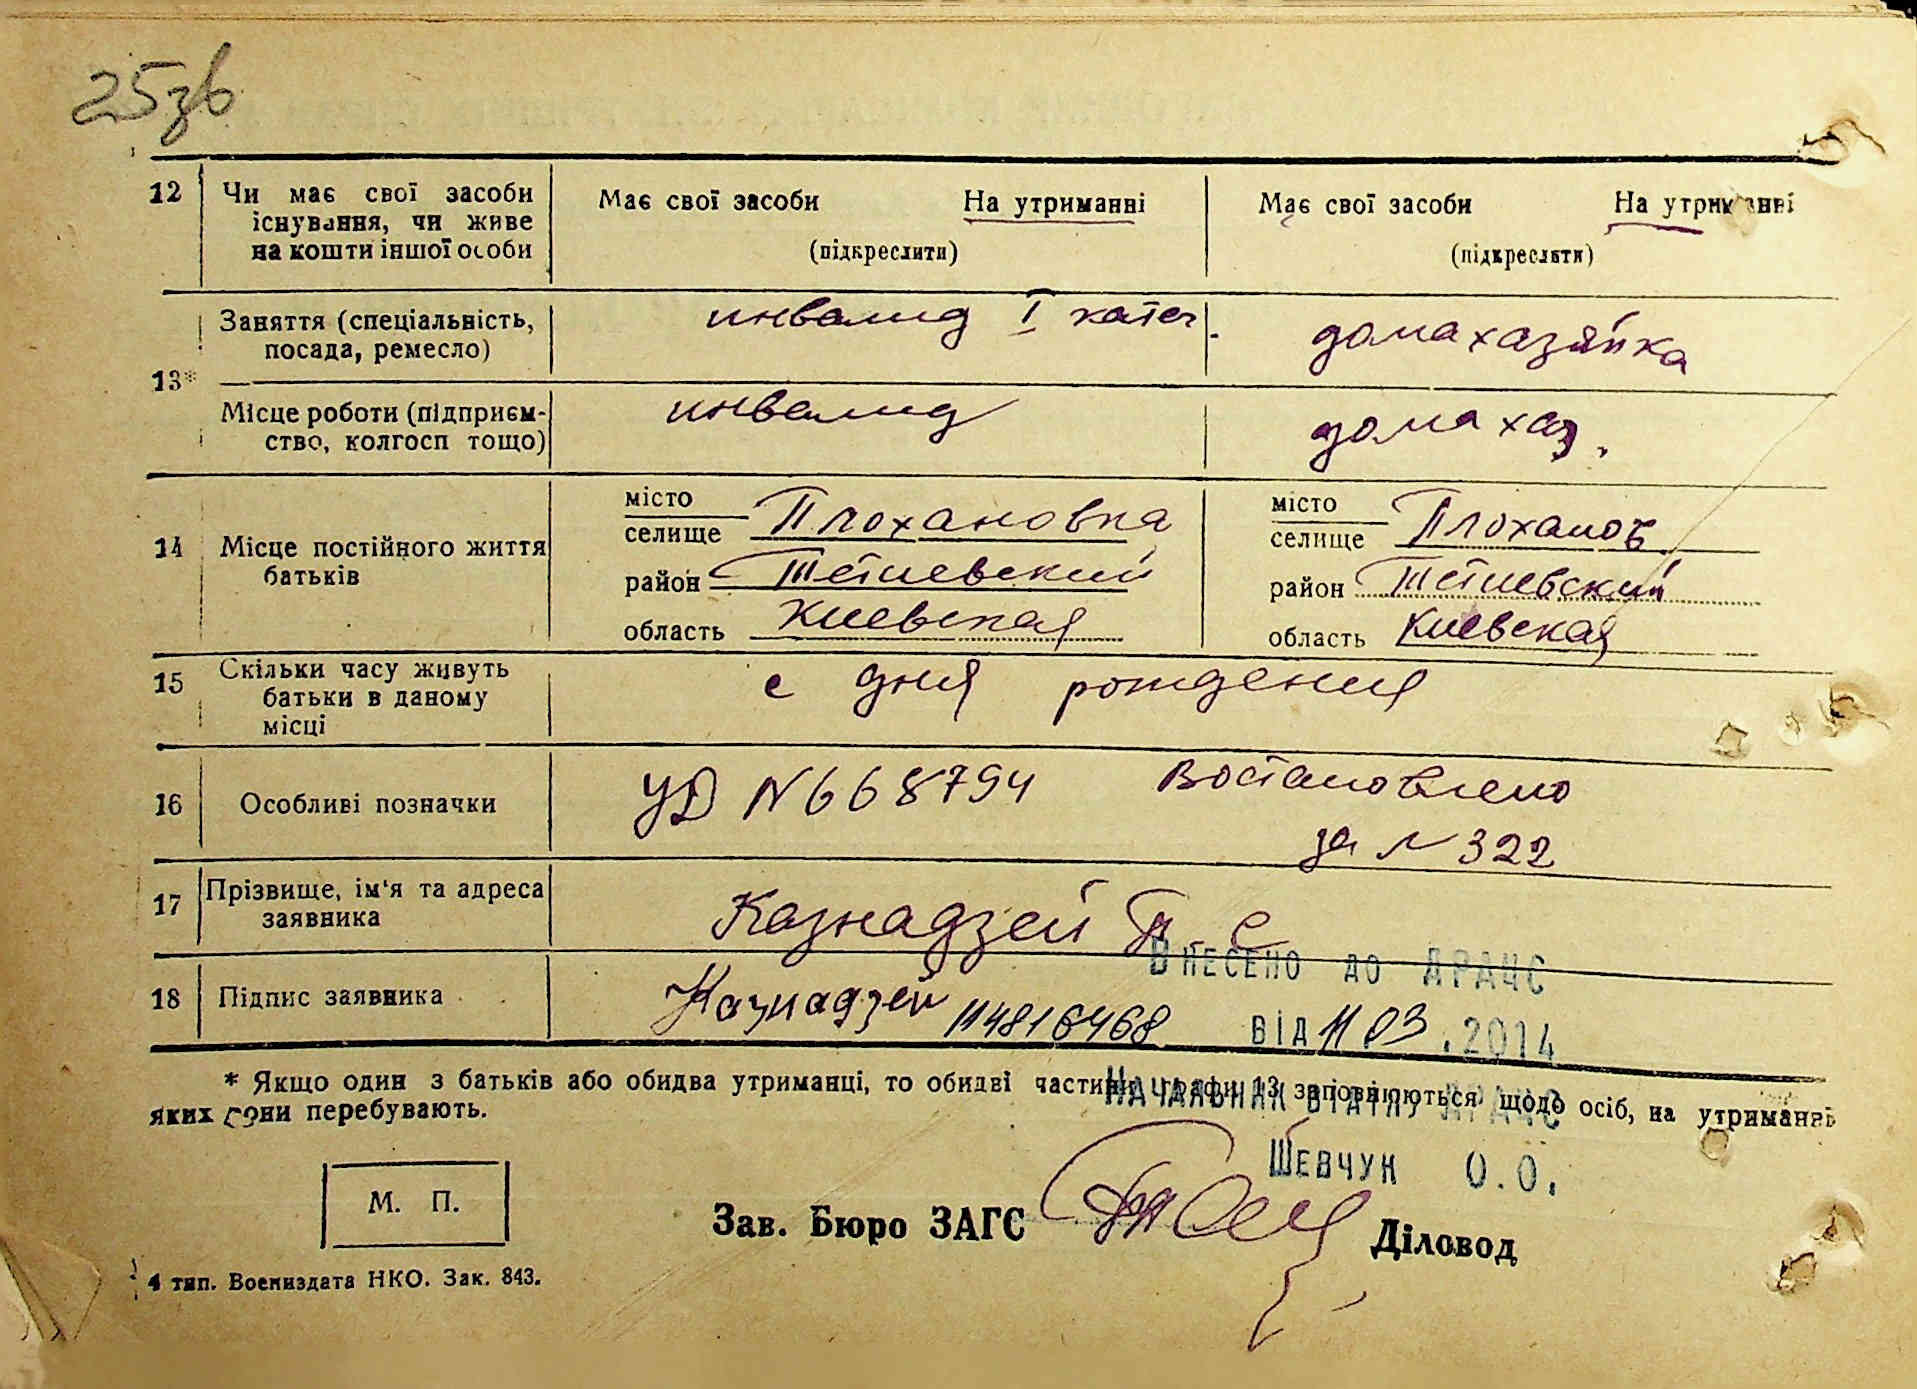 25зв
12 Чи має свої засоби існування, чи живе на кошти іншої особи
Має свої засоби На утриманні
(підкреслити)
Має свої засоби На утриманні
(підкреслити)
13* Заняття (спеціальність, посада, ремесло)
инвалид I катег.
домахазяйка
Місце роботи (підприєм-
ство, колгосп тощо)
инвалид
домахаз.
14 Місце постійного життя батьків
місто
селище Плохановка
район Тетиевский
область Киевская
місто
селище Плоханов
район Тетиевский
область Киевская
15 Скільки часу живуть батьки в даному місці
с дня рождения
16 Особливі позначки
УД N 668794 Востановлено
за N 322
17 Прізвище, ім'я та адреса заявника
Казнадзей П. С
Внесено до ДРАЦС
18 Підпис заявника
Казнадзей 114816468 від 11 03 .2014
* Якщо один з батьків або обидва утриманці, то обидві частини графи 13 заповнюються щодо осіб, на утриманні
яких вони перебувають.
Начальник відділу ДРАЦС
Шевчук О.О.
М. П.
Зав. Бюро ЗАГС
Діловод
4 тип. Воениздата НКО. Зак. 843.